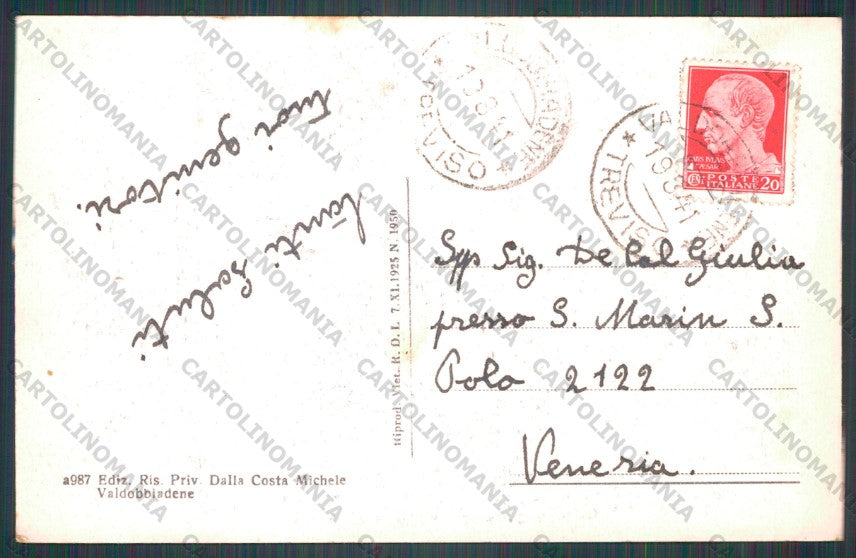 Tanti Saluti
tuoi genitori.
VALDOBBIADENE
* TREVISO *
19.8.41
VALDOBBIADENE
* TREVISO *
19.8.41
CAIVS IVLIVS
CAESAR
POSTE
ITALIANE
20
Sig. De Col Giulia
presso S. Marin S.
Polo 2122
Venezia.
Riprod. Viet. R. D. L. 7. XI. 1925 N. 1950
a987 Ediz. Ris. Priv. Dalla Costa Michele
Valdobbiadene
CARTOLINOMANIA